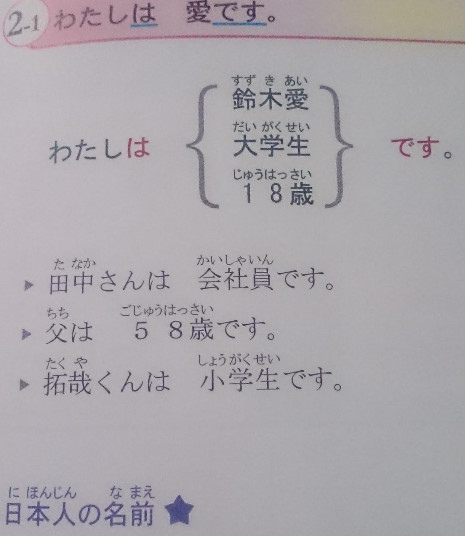 2-1 わたしは 愛です。
すず き あい
鈴木愛
だい がくせい
わたしは 大学生 です。
じゅうはっさい
18歳
た なか かいしゃいん
▶ 田中さんは 会社員です。
ちち ごじゅうはっさい
▶ 父は 58歳です。
たく や しょうがくせい
▶ 拓哉くんは 小学生です。
に ほんじん な まえ
日本人の名前 ★